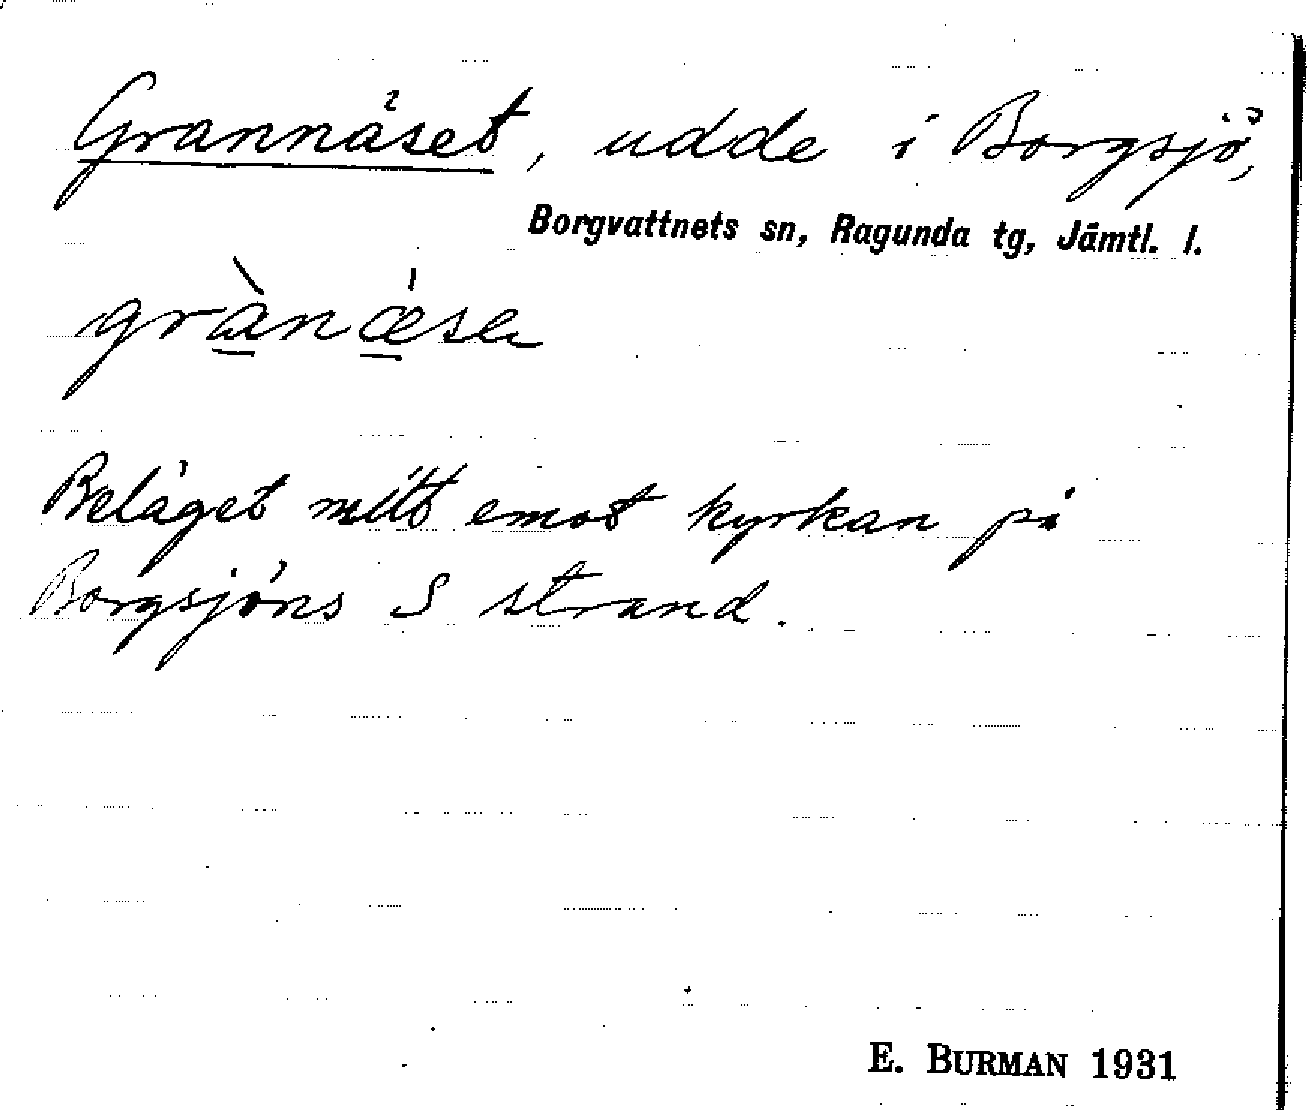 Grannäset, udde i Borgsjö,
Borgvattnets sn, Ragunda tg, Jämtl. l.
grànǽsen
Beläget mitt emot kyrkan på
Borgsjöns S strand.
E. BURMAN 1931